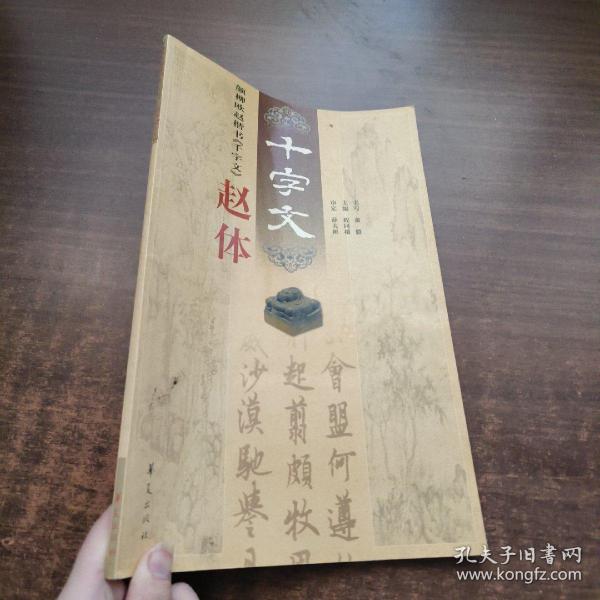 颜柳欧赵楷书《千字文》
赵体
千字文
主编 程同根
會盟何遵
起翦頗牧
沙漠馳譽
华夏出版社
孔夫子旧书网
www.kongfz.com